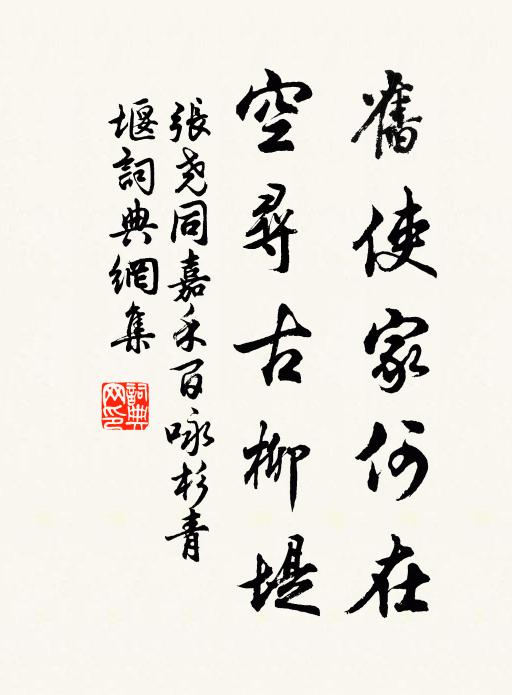 舊使家何在
空尋古柳堤
張尧同嘉禾百咏杉青
堰詞典網集
詞典网印